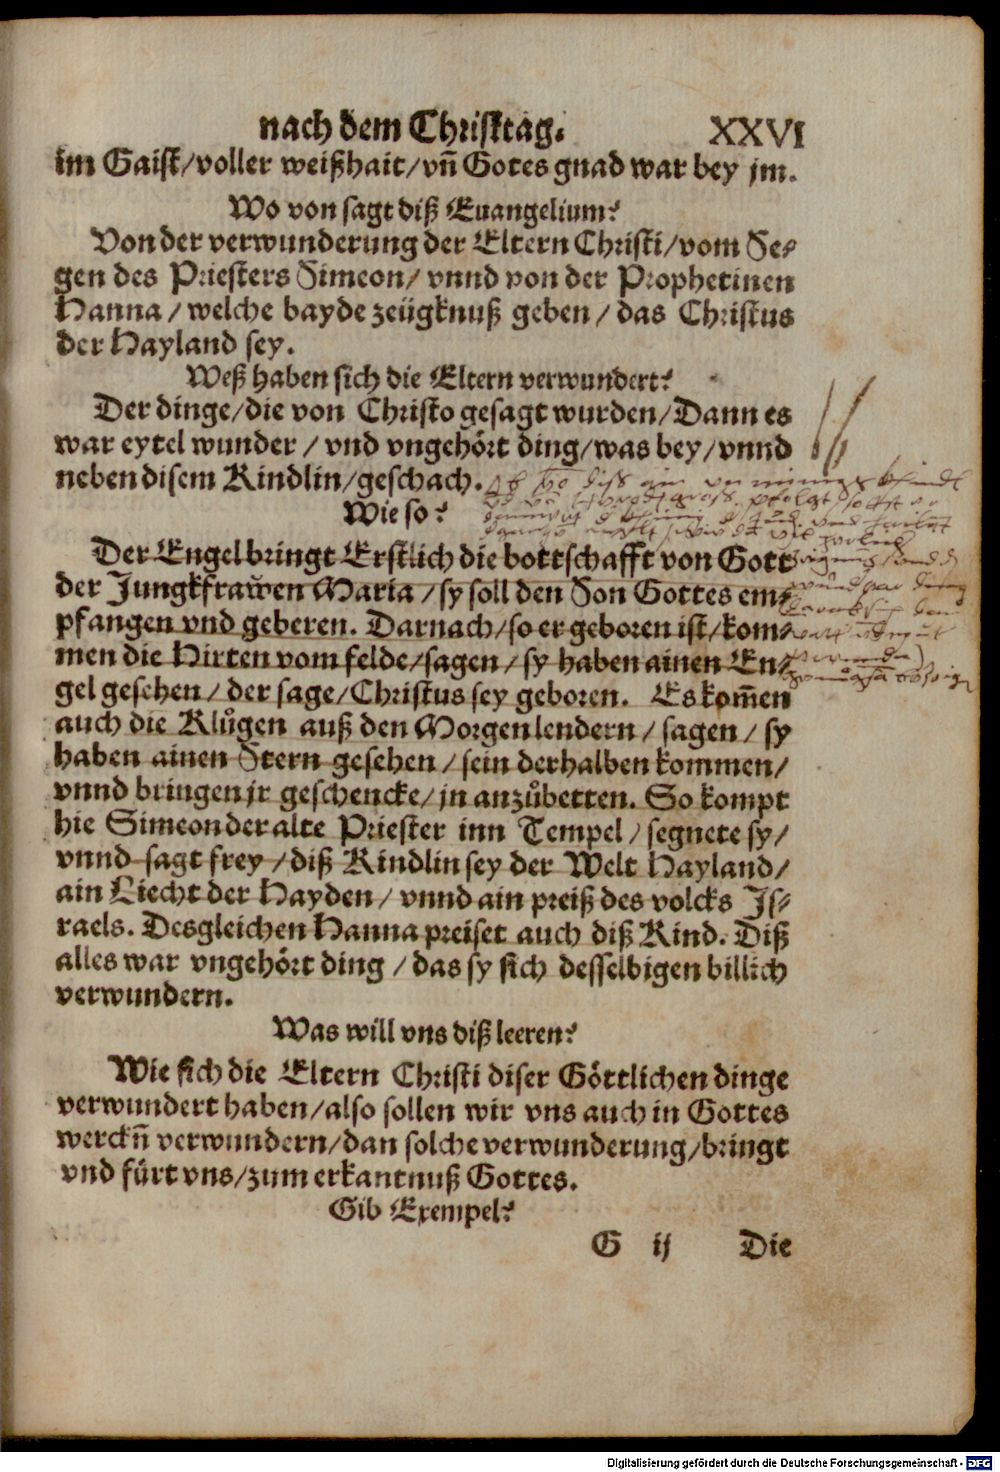 nach dem Christag. XXVI
im Gaist/voller weißhait/vñ Gotes gnad war bey jm.
Wo von sagt diß Euangelium?
Von der verwunderung der Eltern Christi/vom Se⸗
gen des Priesters Simeon/ vnnd von der Prophetinen
Hanna/welche bayde zeügknuß geben/das Christus
der Hayland sey.
Weß haben sich die Eltern verwundert?
Der dinge/die von Christo gesagt wurden/Dann es
war eytel wunder/vnd vngehört ding/was bey/vnnd
neben disem Kindlin/geschach.
Wie so?
Der Engel bringt Erstlich die bottschafft von Gott
der Jungkfrawen Maria/sy soll den Son Gottes em⸗
pfangen vnd geberen. Darnach/so er geboren ist/kom⸗
men die Hirten vom felde/sagen/sy haben ainen En⸗
gel gesehen/der sage/Christus sey geboren. Es kom̃en
auch die Klůgen auß den Morgenlendern/sagen/sy
haben ainen Stern gesehen/sein derhalben kommen/
vnnd bringen jr geschencke/jn anzůbetten. So kompt
hie Simeon der alte Priester inn Tempel/segnete sy/
vnnd sagt frey/diß Kindlin sey der Welt Hayland/
ain Liecht der Hayden/vnnd ain preiß des volcks Is⸗
raels. Desgleichen Hanna preiset auch diß Kind. Diß
alles war vngehört ding/das sy sich desselbigen billich
verwundern.
Was will vns diß leeren?
Wie sich die Eltern Christi diser Göttlichen dinge
verwundert haben/also sollen wir vns auch in Gottes
werckñ verwundern/dan solche verwunderung/bringt
vnd fürt vns/zum erkantnuß Gottes.
Gib Exempel?
G ij Die
Digitalisierung gefördert durch die Deutsche Forschungsgemeinschaft - DFG